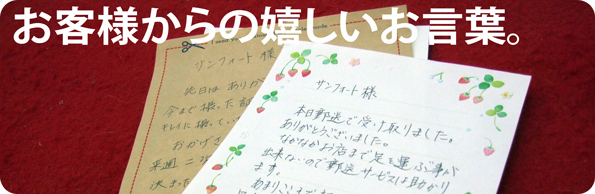 お客様からの嬉しいお言葉。
サンフォート様
先日は ありが
今まで撮った証
キレイに撮ってい
おかげさ
来週 二
決まった
サンフォート様
本日郵送で受け取りました。
ありがとうございました。
なかなかお店まで足を運ぶ事が
出来ないので郵送サービスは助かり
ます。